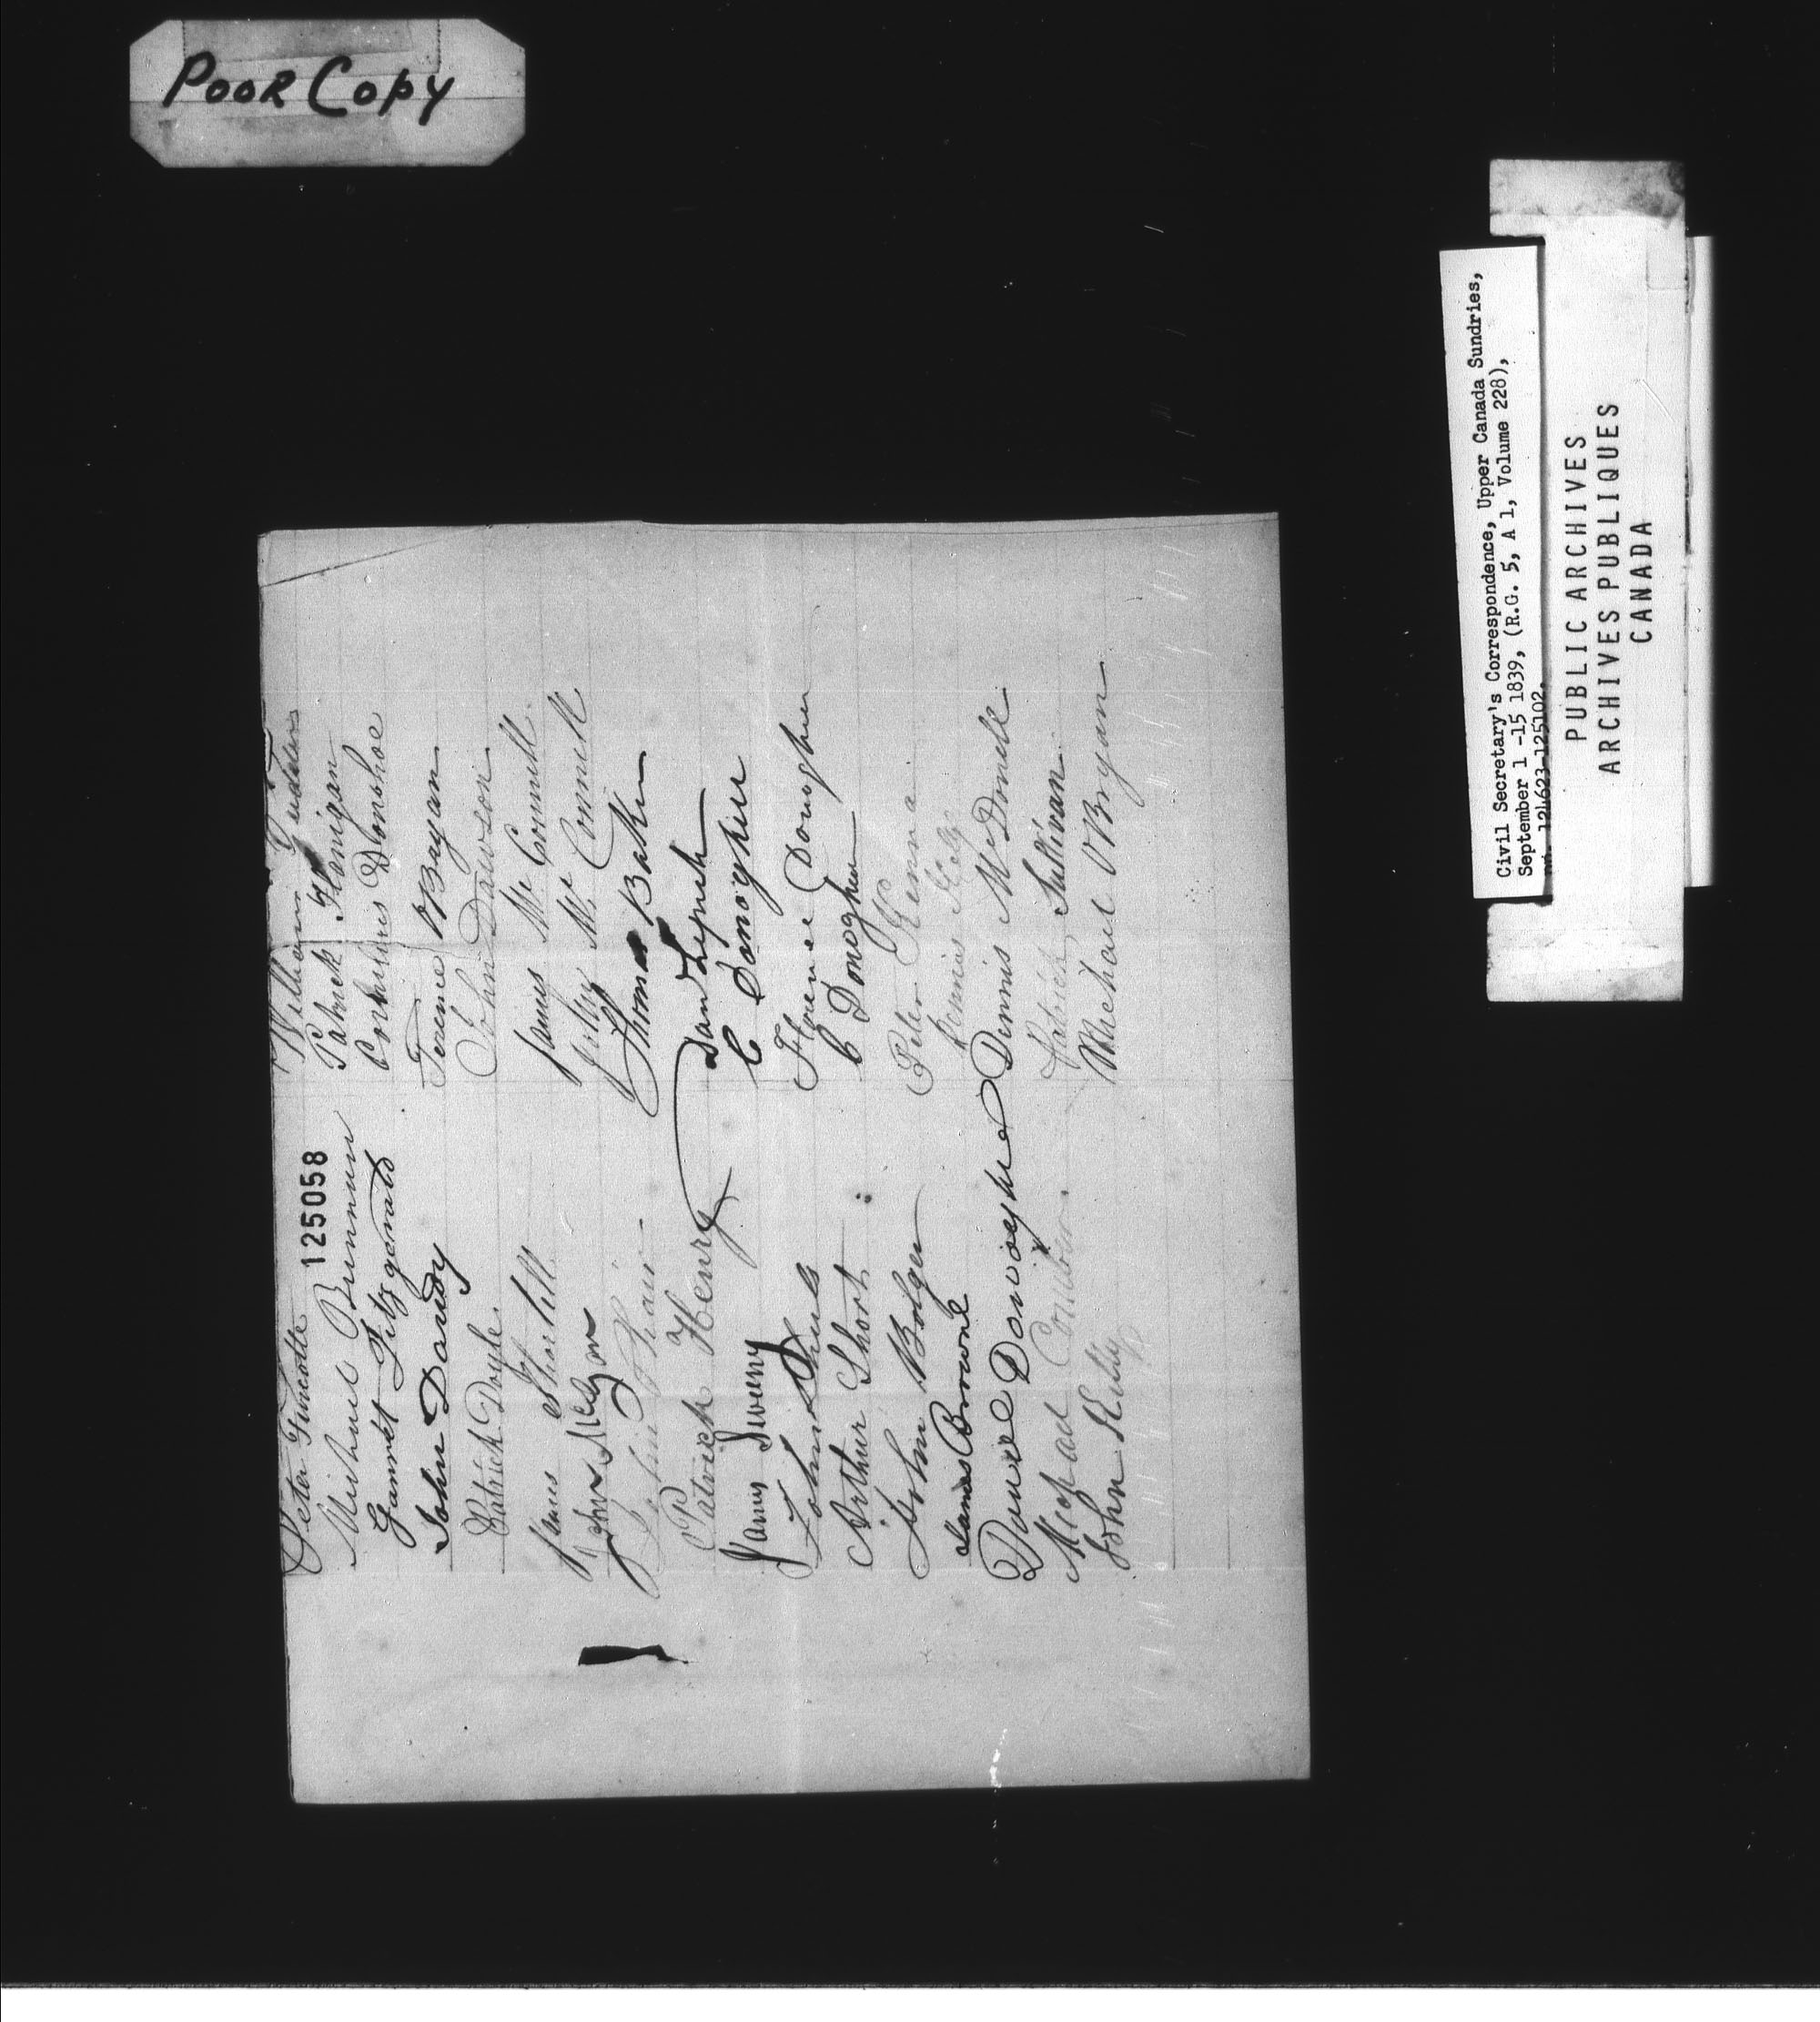 Poor Copy
125058
Michael Brennan
Garrett Fitzgerald
John Dandy
Patrick Doyle
James Shortill
John
Patrick Henry
James Sweeny
John
Arthur Short
John Bolger
James Browne
Daniel Donoghue
Michael
John Kelly
William
Patrick Flanigan
Cornelius Donohoe
Terence OBryan
John Dawson
James McConnell
McConnell
Thomas Baker
Dan Lynch
C Donoghue
Florence Donoghue
C Donoghue
Peter Kenna
Dennis Kelly
Dennis McDonell
Patrick Sullivan
Michael OBryan
Civil Secretary's Correspondence, Upper Canada Sundries,
September 1 -15 1839, (R.G. 5, A 1, Volume 228),
124623-125102.
PUBLIC ARCHIVES
ARCHIVES PUBLIQUES
CANADA